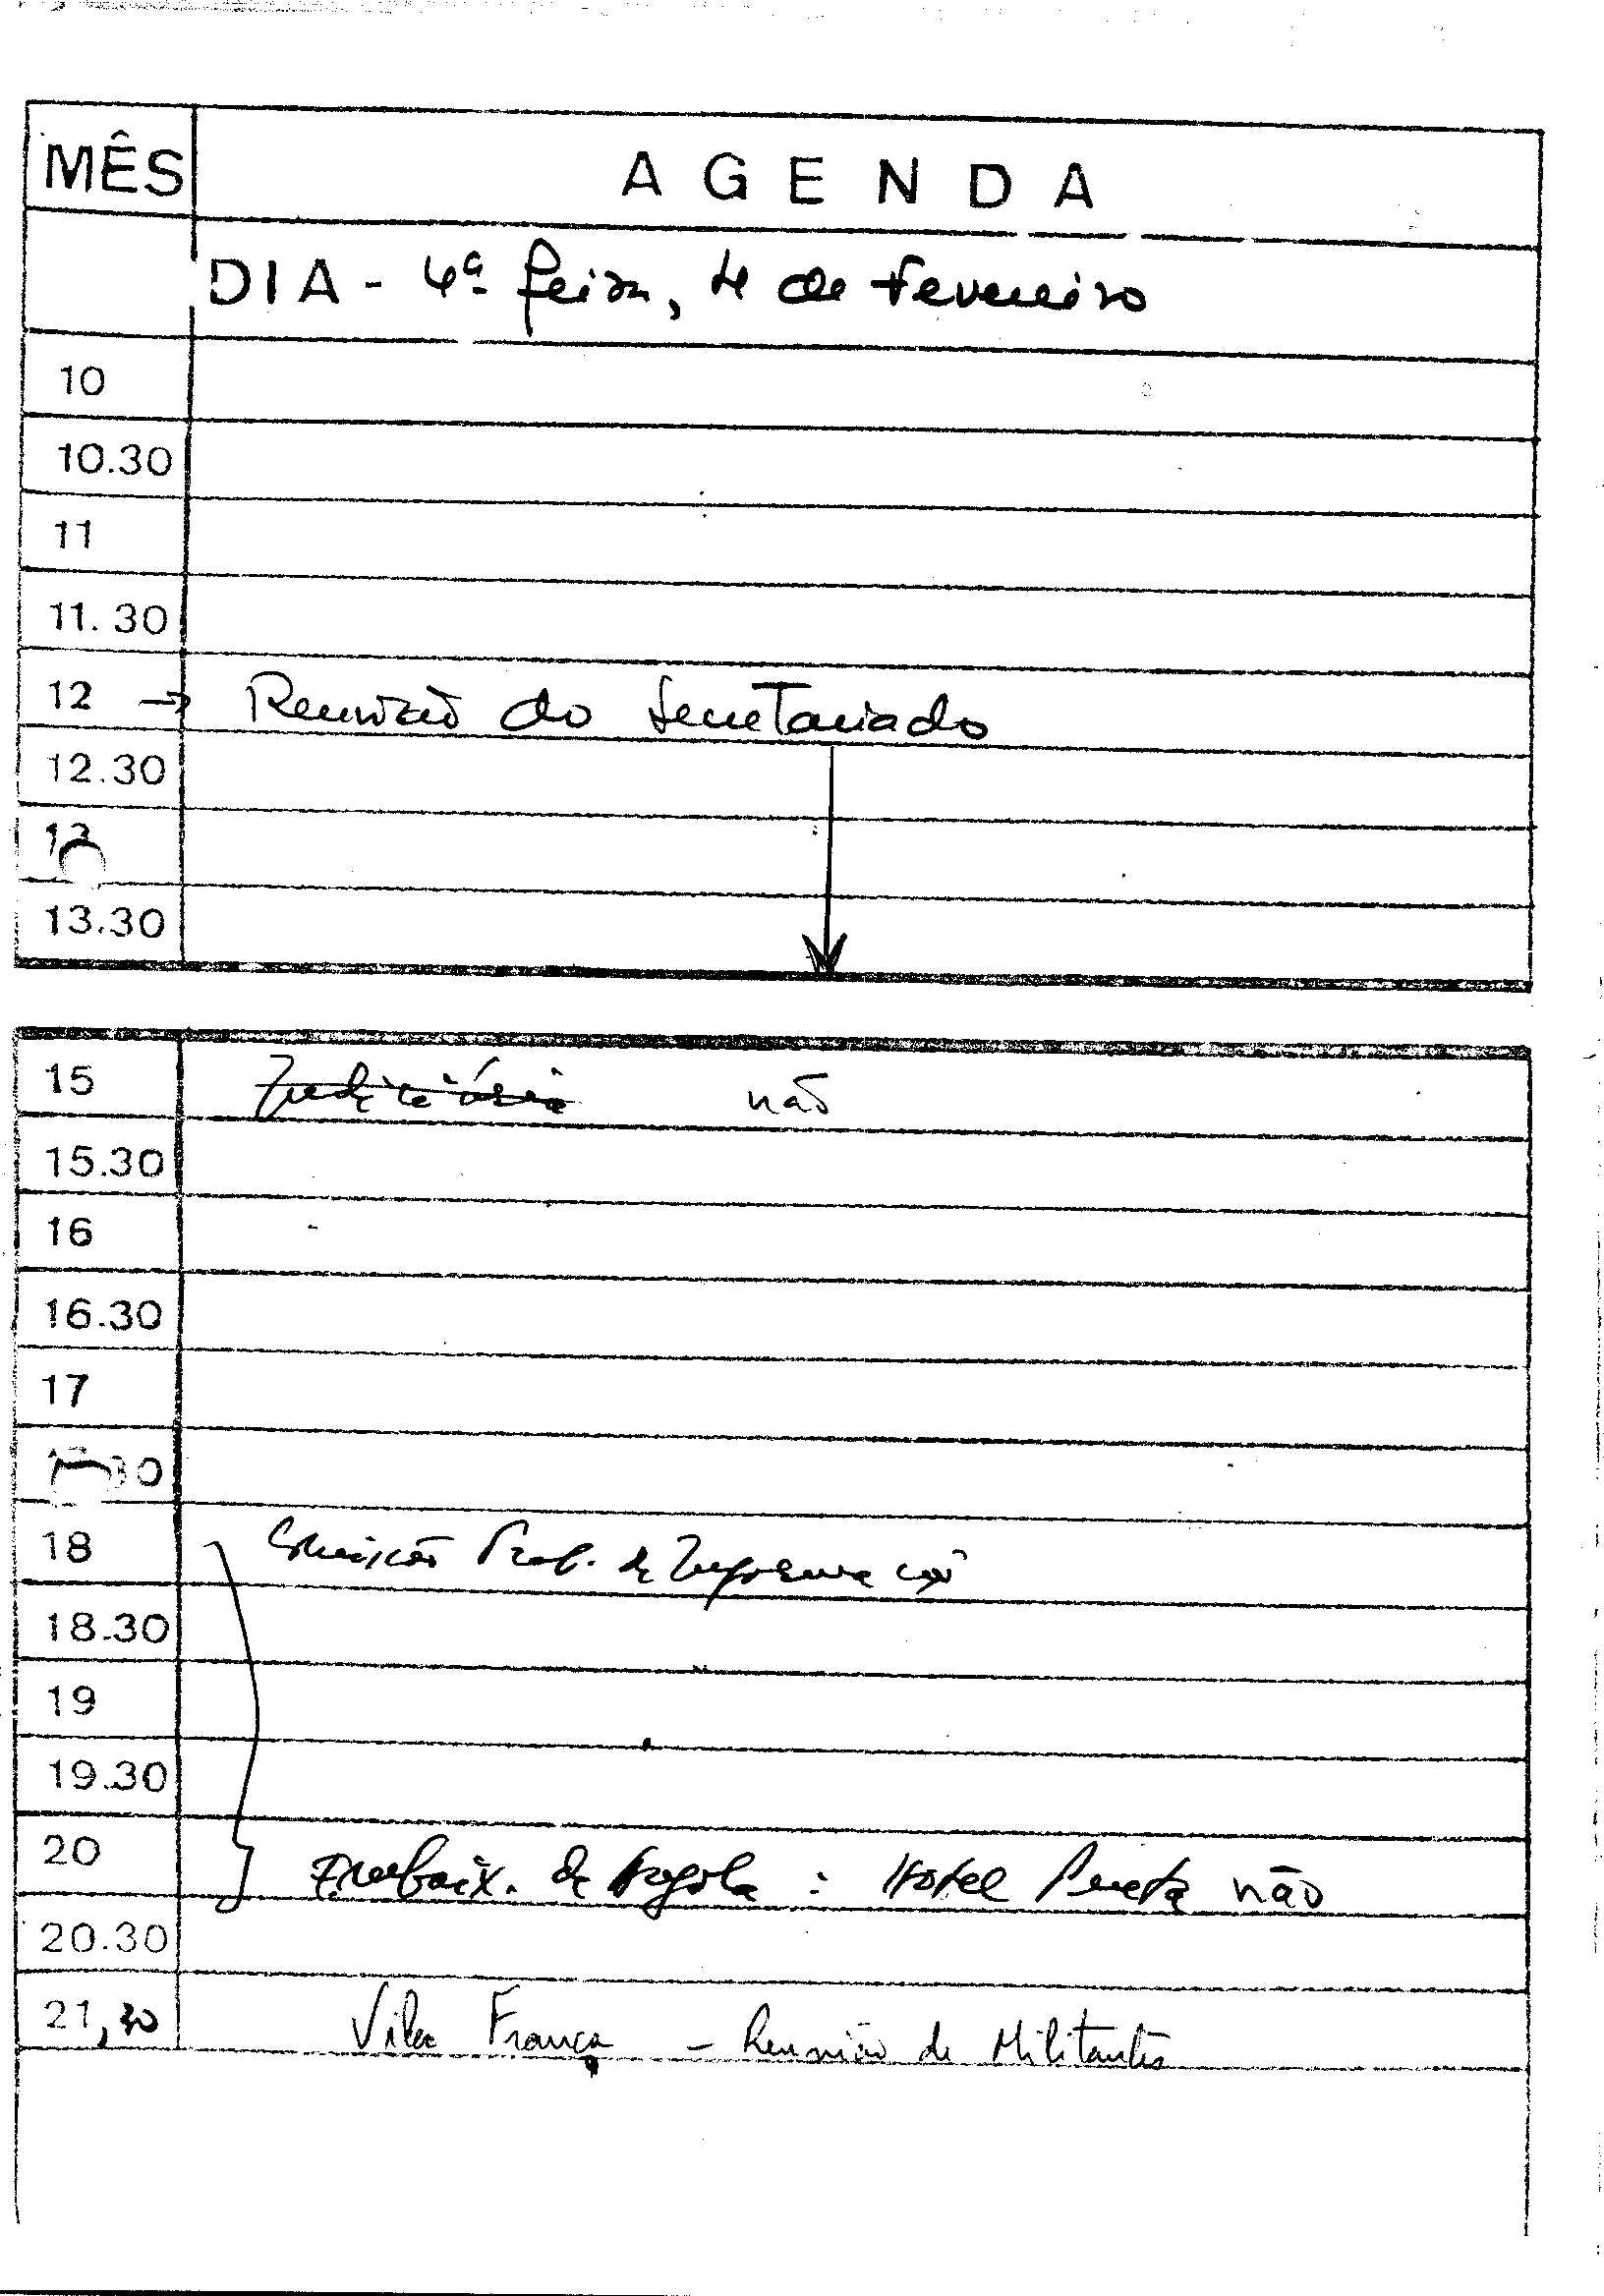 MÊS A G E N D A
DIA - 4ª feira, 4 de Fevereiro
10
10.30
11
11.30
12 → Reunião do Secretariado
12.30
13
13.30
15 Judiciária não
15.30
16
16.30
17
30
18 Comissão Prof. de Informação
18.30
19
19.30
20 Embaix. de Angola : Hotel Penta não
20.30
21,30 Vila França - Reunião de Militantes